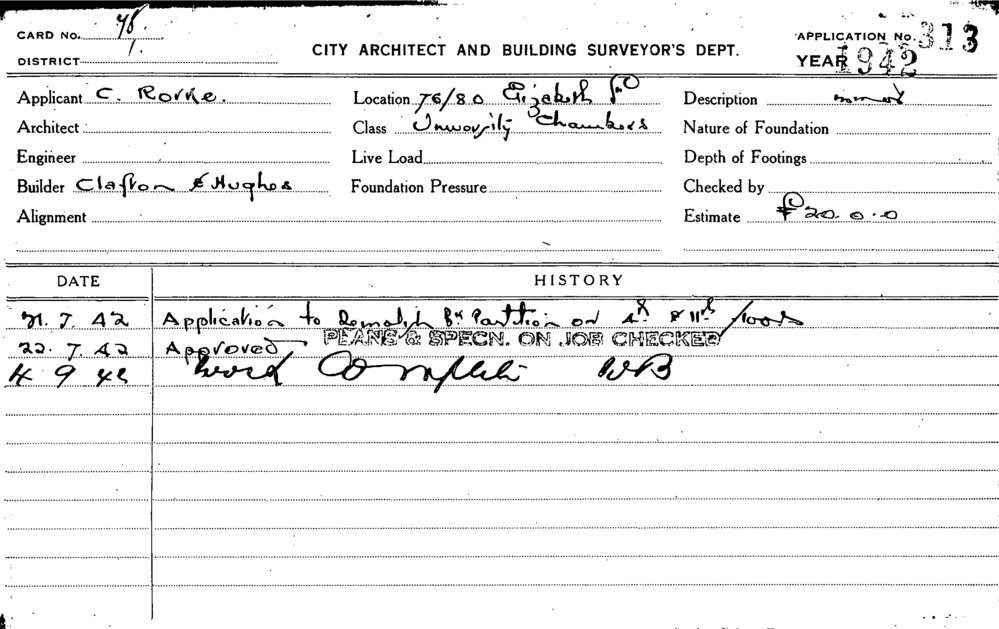 CARD No. 78.
DISTRICT 1.
CITY ARCHITECT AND BUILDING SURVEYOR'S DEPT.
APPLICATION No. 313
YEAR 1942
Applicant C. Rorke.
Location 76/80 Elizabeth St
Description
Architect
Class University Chambers
Nature of Foundation
Engineer
Live Load
Depth of Footings
Builder Clafton & Hughes
Foundation Pressure
Checked by
Alignment
Estimate £20.0.0
DATE HISTORY
21. 7. 42 Application to Demolish Bk Partition on 4th & 11th floors
PLANS & SPECN. ON JOB CHECKED
22. 7. 42 Approved
4 9 42 Work Complete WB